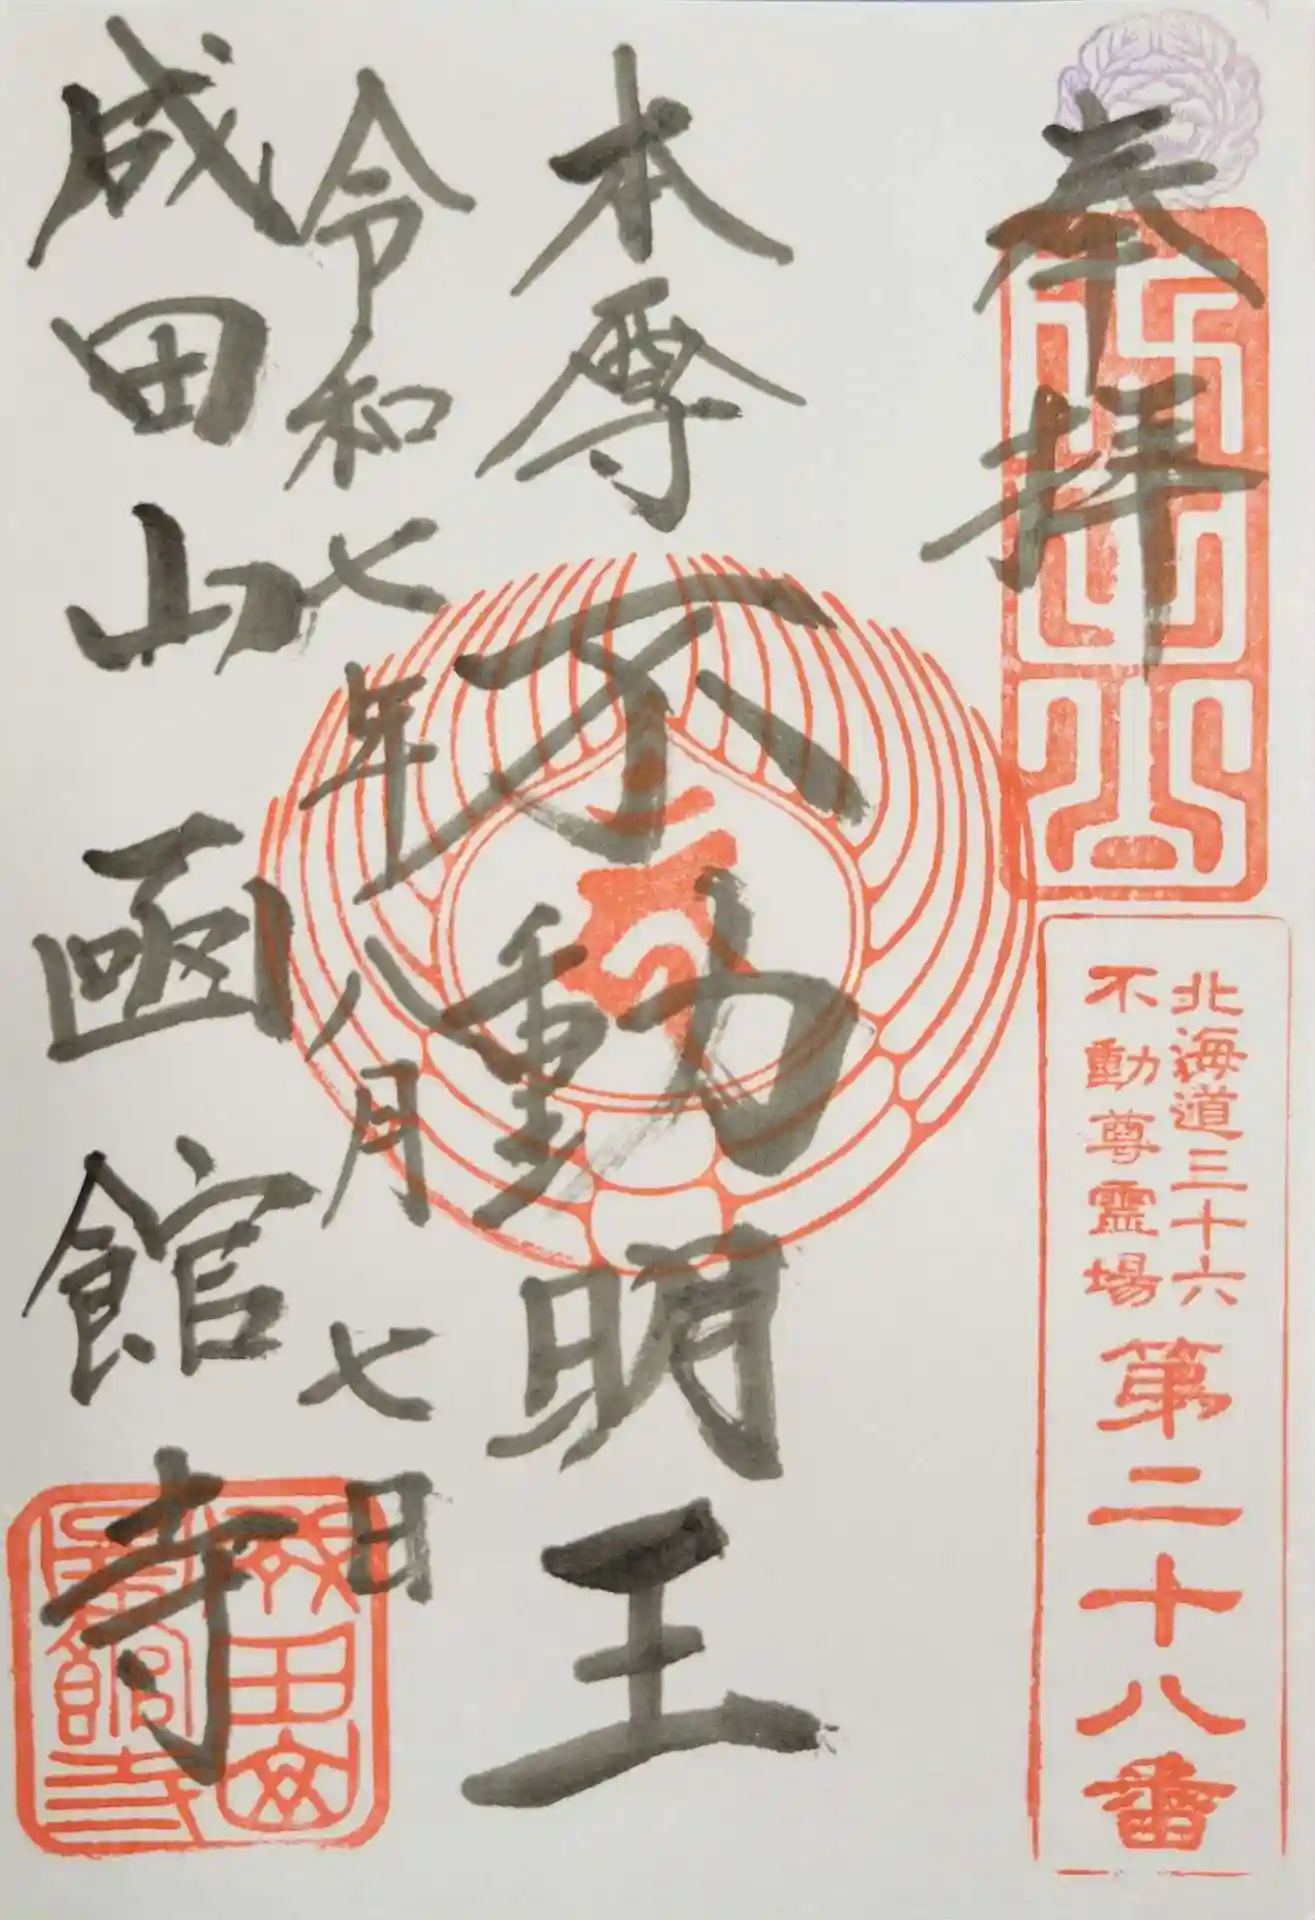 奉拝
北海道三十六
不動尊霊場
第二十八番
本尊不動明王
令和七年八月七日
成田山函館寺